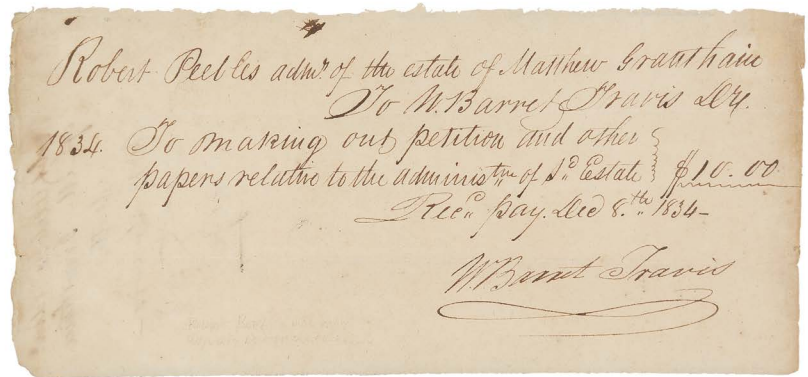 Robert Peebles admr. of the estate of Matthew Grantham
To W. Barret Travis Dr.
1834. To making out petition and other
papers relative to the administn. of sd. Estate } $10.00
Recd. pay. Decr 8.th 1834–
W. Barret Travis